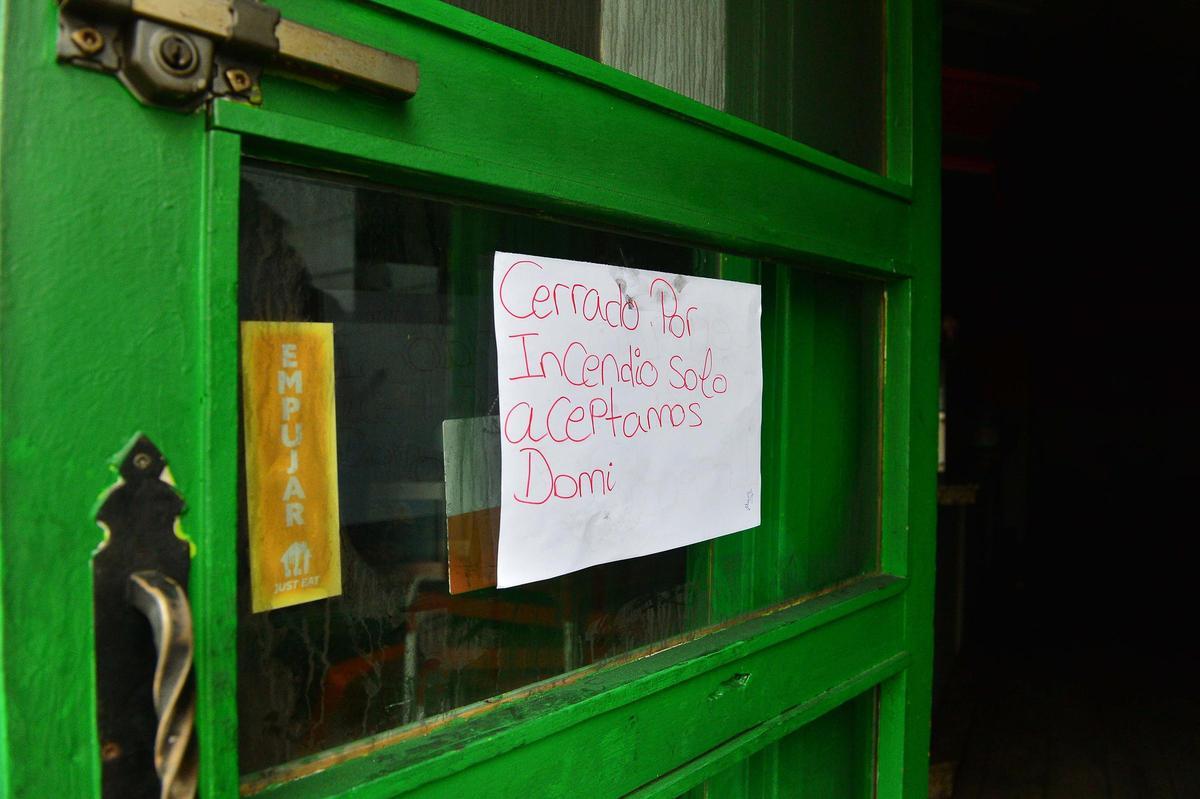 Cerrado Por
Incendio solo
aceptamos
Domi
EMPUJAR
JUST EAT